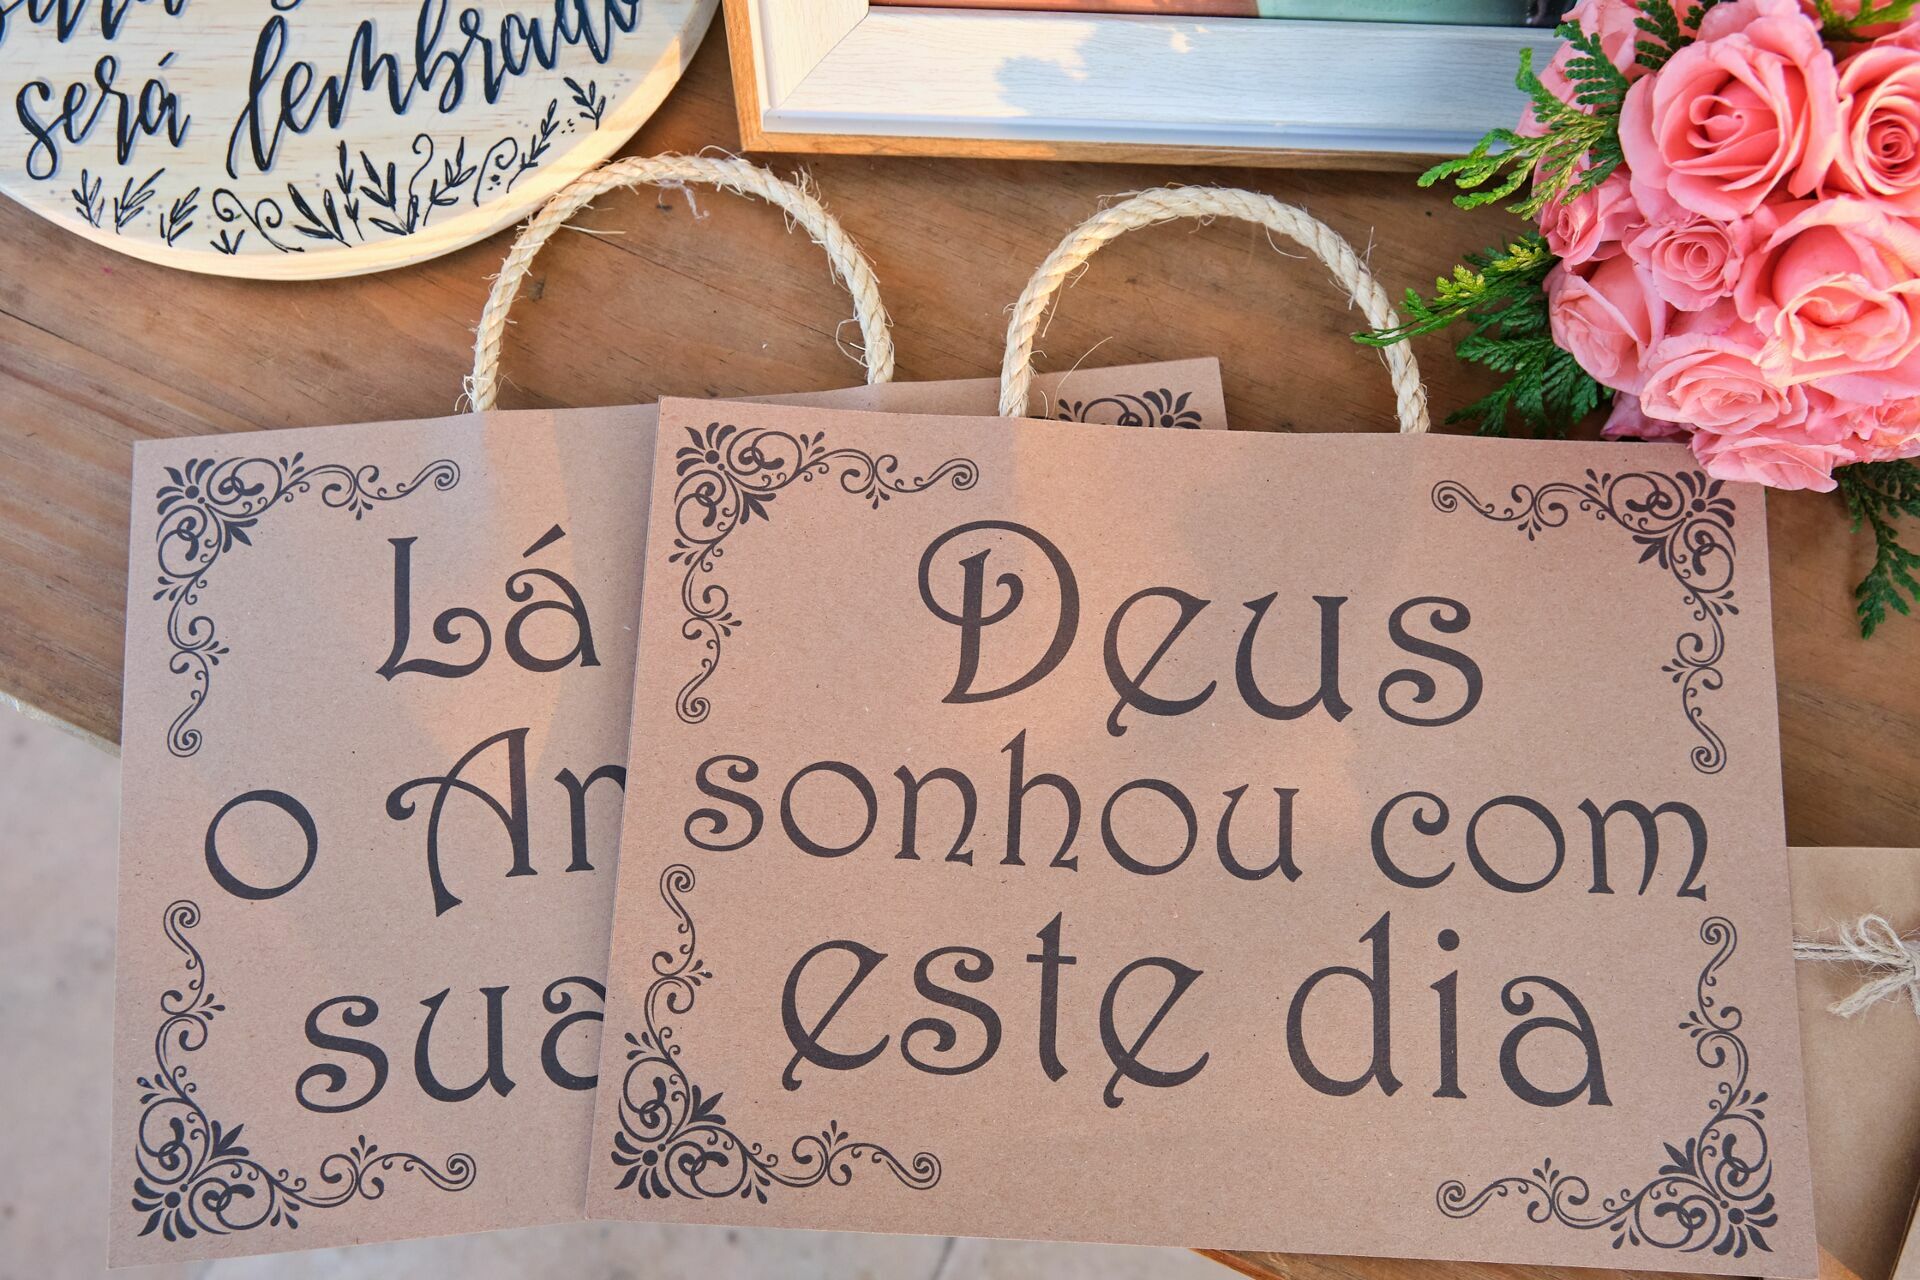 será lembrado
Lá
o
sua
Deus
sonhou com
este dia